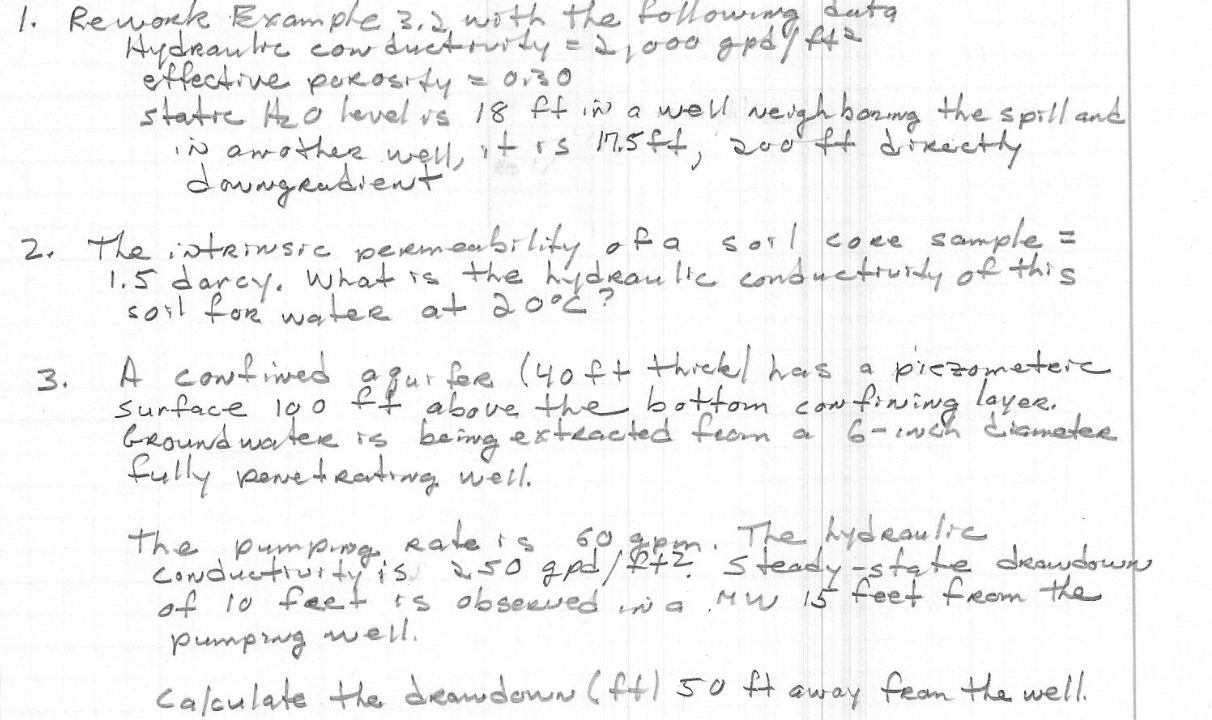 1. Rework Example 3.2 with the following data
Hydraulic conductivity = 2,000 gpd/ft²
effective porosity = 0.30
static H2O level is 18 ft in a well neighboring the spill and
in another well, it is 17.5 ft, 200 ft directly
downgradient
2. The intrinsic permeability of a soil core sample =
1.5 darcy. What is the hydraulic conductivity of this
soil for water at 20°C?
3. A confined aquifer (40 ft thick) has a piezometeric
surface 100 ft above the bottom confining layer.
Groundwater is being extracted from a 6-inch diameter
fully penetrating well.
The pumping rate is 60 gpm. The hydraulic
conductivity is 250 gpd/ft². Steady-state drawdown
of 10 feet is observed in a MW 15 feet from the
pumping well.
Calculate the drawdown (ft) 50 ft away from the well.